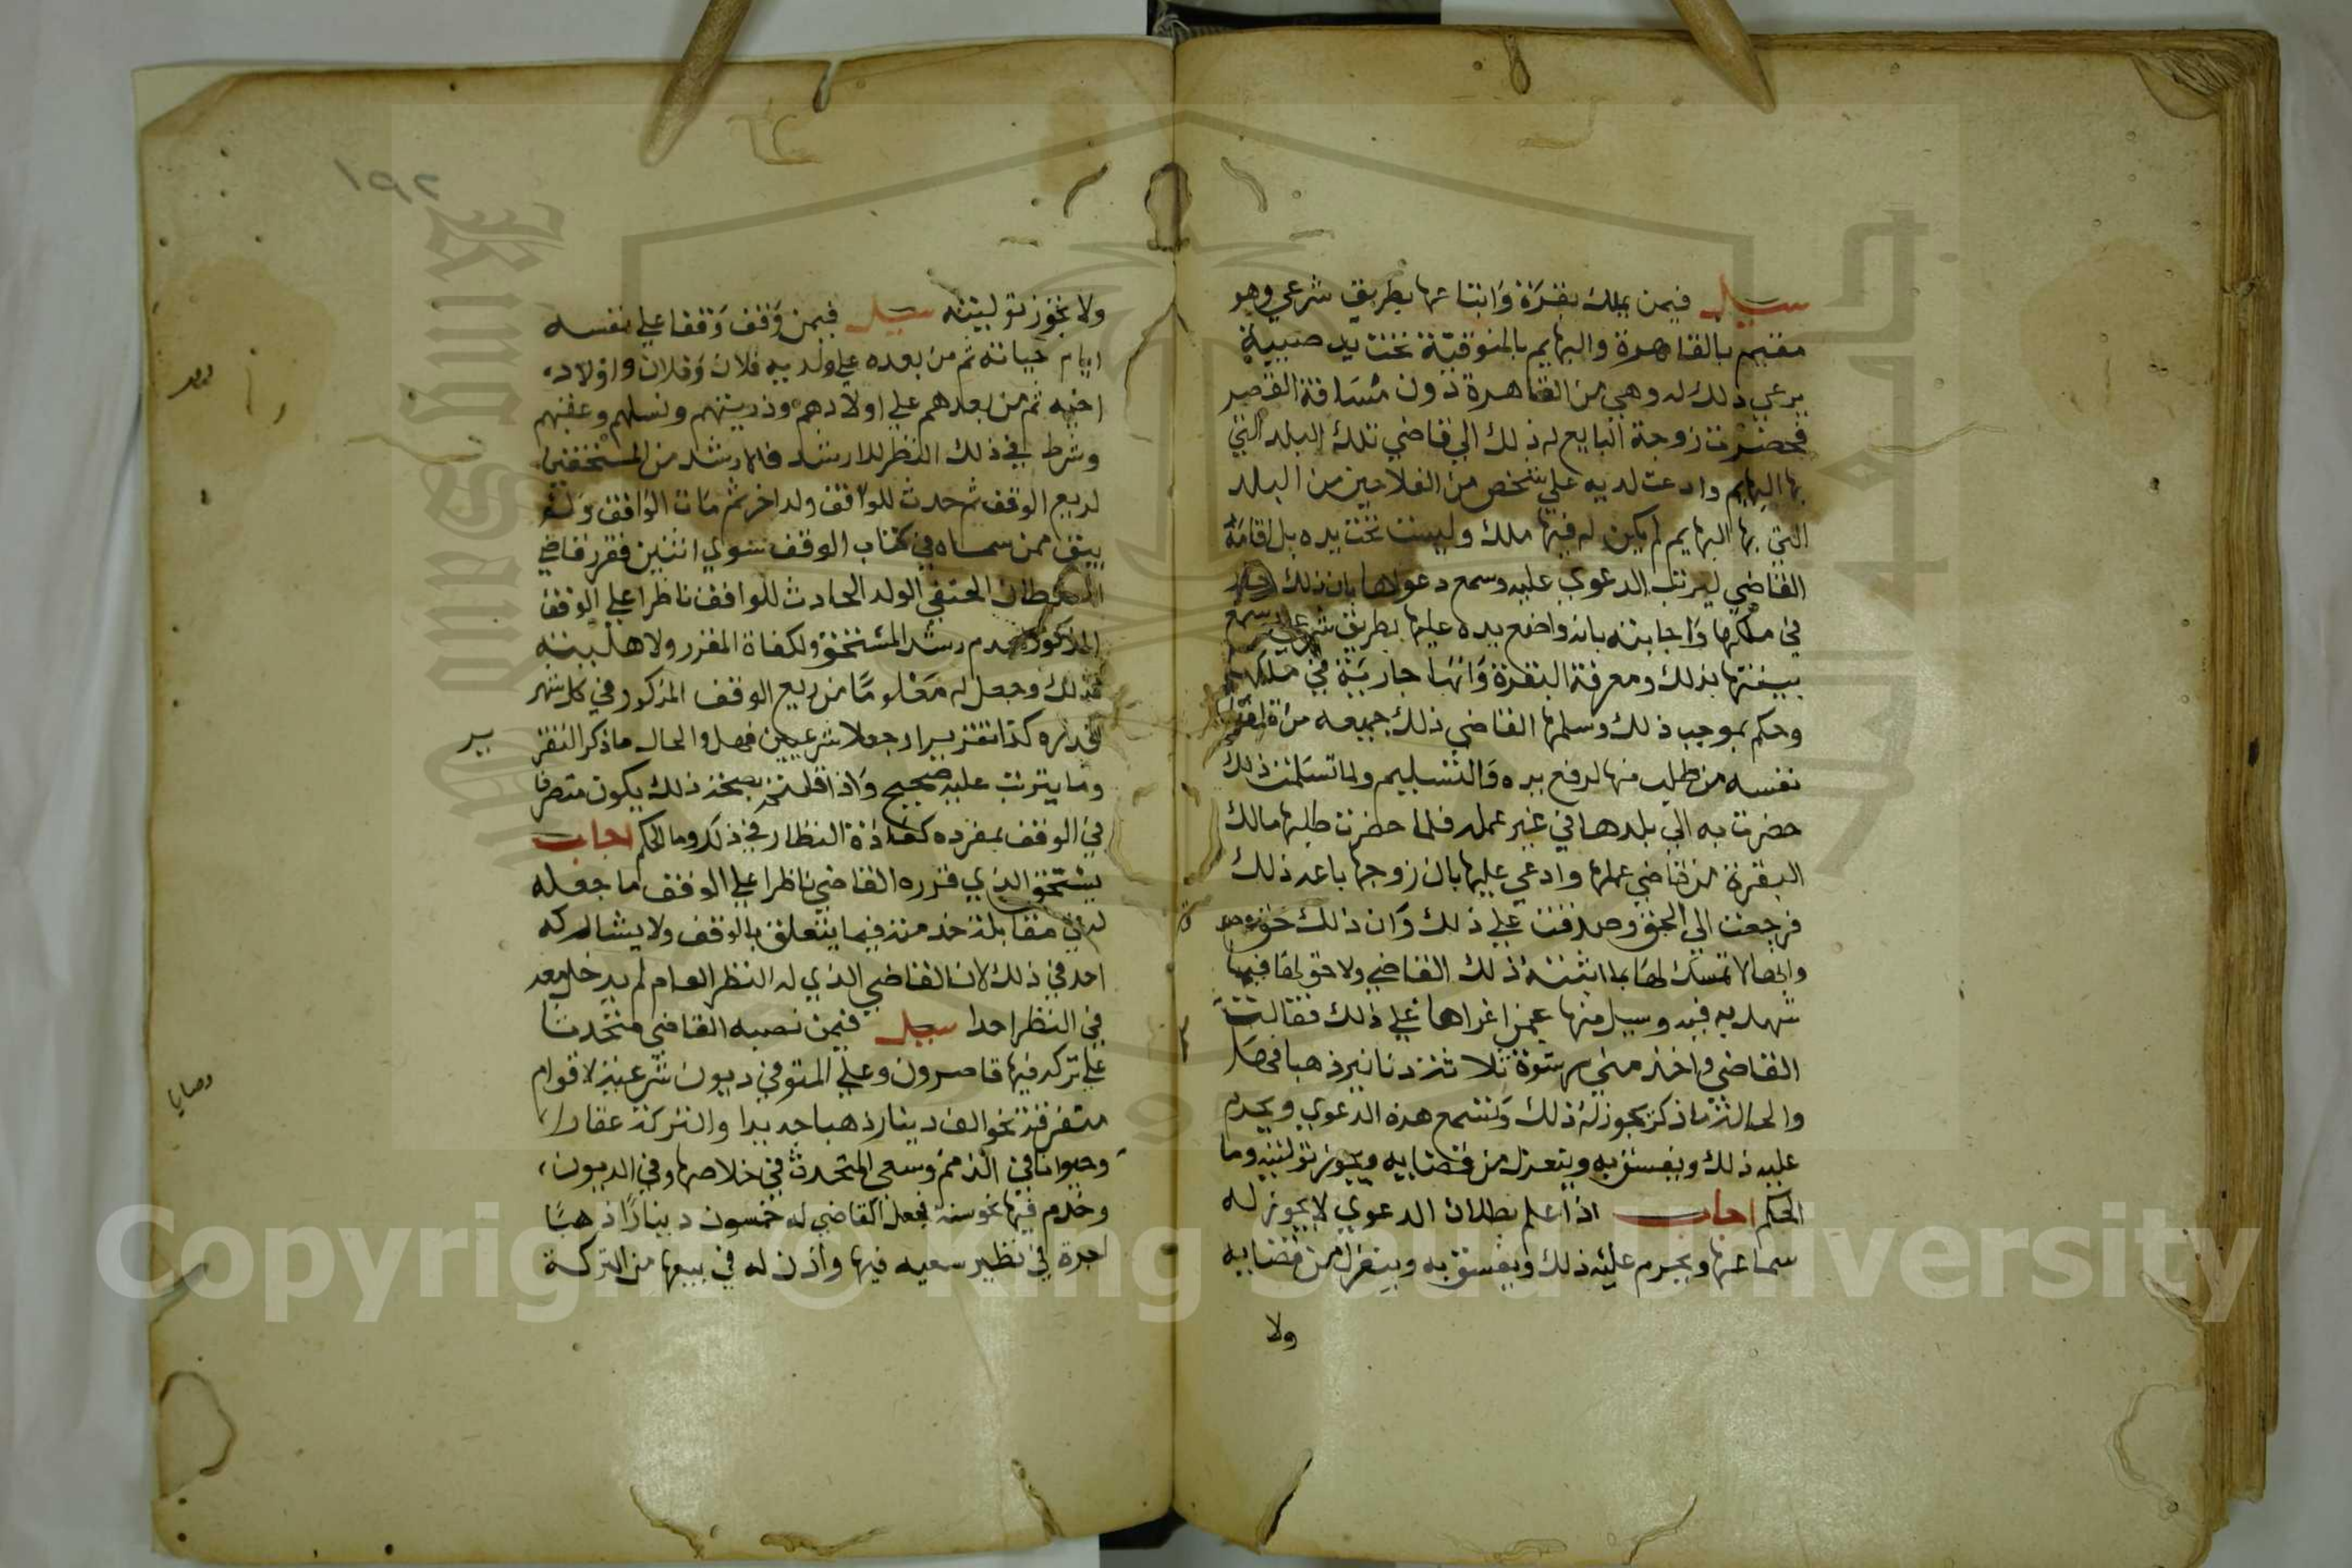 سيل فيمن يملك بقرة وابتاعها بطريق شرعي وهو
مقيم بالقاهرة والبهايم بالمنوفية تحت يد
يرعي ذلك له وهي من القاهرة دون مسافة القصر
فحضرت زوجة البايع له ذلك الي قاضي تلك البلد التي
بها البهايم وادعت لديه علي شخص من الفلاحين من البلد
التي بها البهايم لم يكن له فيها ملك وليست تحت يده بل اقامه
القاضي ليرتب الدعوي عليه وسمع دعواها بان ذلك
في ملكها واجابته بانه واضع يده عليها بطريق شرعي
بينتها بذلك ومعرفة البقرة وانها جارية في ملكها
وحكم بموجب ذلك وسلمها القاضي ذلك جميعه من
نفسه من طلب منها لرفع يده والتسليم ولما تسلمت ذلك
حضرت به الي بلدها في غير عمله فلما حضرت طلبها مالك
البقرة من قاضي عملها وادعي عليها بان زوجها باعه ذلك
فرجعت الي الحق وصدقت علي ذلك وان ذلك حقه
وانها لا تمسك لها بما اثبته ذلك القاضي ولا حق لها فيما
شهد به فيه وسيل منها عمن اغراها علي ذلك فقالت
القاضي واخذ مني رشوة ثلاثة دنانير ذهبا فهل
والحالة ما ذكر يجوز له ذلك وتسمع هذه الدعوي ويحرم
عليه ذلك ويفسق به وينعزل من قضايه ويجوز توليته وما
الحكم اجاب اذا علم بطلان الدعوي لا يجوز له
سماعها ويحرم عليه ذلك ويفسق به وينعزل من قضايه
ولا
١٩٢
ولا تجوز توليته سيل فيمن وقف وقفا علي نفسه
ايام حياته ثم من بعده علي ولديه فلان وفلان واولاد
اخيه ثم من بعدهم علي اولادهم وذريتهم ونسلهم وعقبهم
وشرط في ذلك النظر للارشد فالارشد من المستحقين
لريع الوقف ثم حدث للواقف ولد اخر ثم مات الواقف ولم
يبق ممن سماه في كتاب الوقف سوي اثنين فقرر قاضي
الحنفي الولد الحادث للواقف ناظرا علي الوقف
المذكور لعدم رشد المستحق ولكفاة المقرر ولاهليته
لذلك وجعل له معلوما من ريع الوقف المذكور في كل شهر
قدره كذا تقريرا وجعلا شرعيين فهل والحال ما ذكر التقرير
وما يترتب عليه صحيح واذا قلتم بصحة ذلك يكون متصرفا
في الوقف بمفرده كعادة النظار في ذلك وما الحكم اجاب
يستحق الذي قرره القاضي ناظرا علي الوقف ما جعله
له في مقابلة خدمته فيما يتعلق بالوقف ولا يشاركه
احد في ذلك لان القاضي الذي له النظر العام لم يدخل معه
في النظر احدا سيل فيمن نصبه القاضي متحدثا
علي تركه فيها قاصرون وعلي المتوفي ديون شرعية لاقوام
متفرقة نحو الف دينار ذهبا جديدا والتركة عقارا
وحيوانا في الذمم وسعي المتحدث في خلاصها وفي الديون
وخدم فيها نحو سنة فجعل القاضي له خمسون دينارا ذهبا
اجرة في نظير سعيه فيها واذن له في بيعها من التركة
وصايا
Copyright © King Saud University
King Saud University